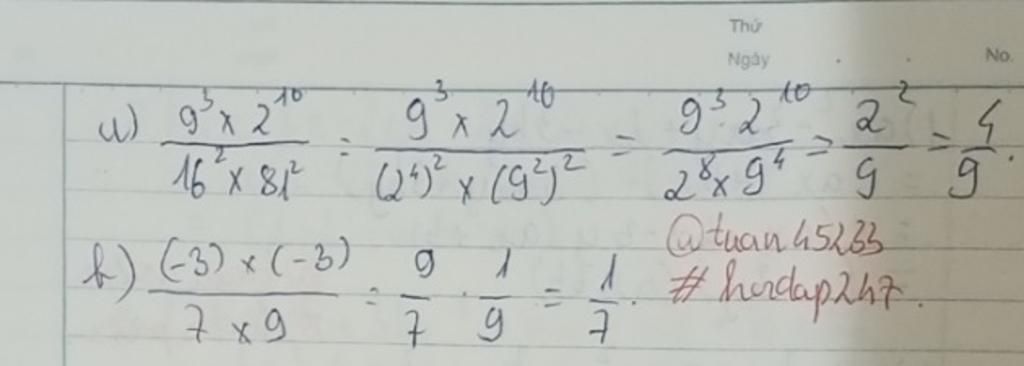 Thứ
Ngày
No.
a) 9³ x 2¹⁰ / 16² x 81² = 9³ x 2¹⁰ / (2⁴)² x (9²)² = 9³ · 2¹⁰ / 2⁸ x 9⁴ = 2² / 9 = 4 / 9 .
b) (-3) x (-3) / 7 x 9 = 9 / 7 · 1 / 9 = 1 / 7 .
@tuan45233
# hoidap247 .